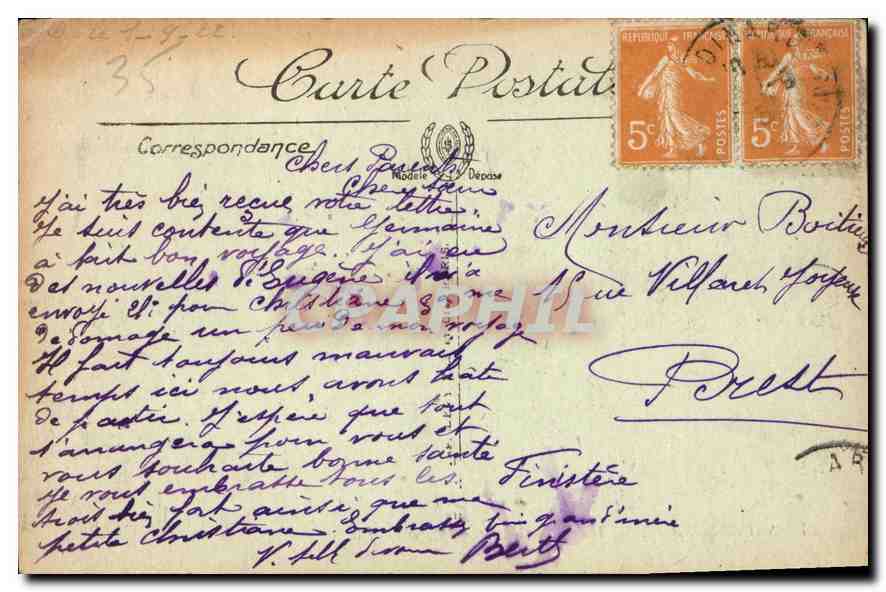 35
Carte Postale
REPUBLIQUE FRANÇAISE
5c
POSTES
REPUBLIQUE FRANÇAISE
5c
POSTES
DINARD
Correspondance
Modèle Déposé
Chers Parents
Chère Sœur
J'ai très bien reçue votre lettre.
Je suis contente que Germaine
a fait bon voyage. J'ai eu
des nouvelles d'Eugène il m'a
envoyé pour Christiane ça me
dédomage un peu de mon voyage
Il fait toujours mauvais
temps ici nous avons hâte
de partir. J'espère que tout
s'arrangera pour vous et
vous souhaite bonne santé
Je vous embrasse tous les
trois bien fort ainsi que ma
petite Christiane. Embrassez bien grand'mère
V. fille Berthe
Monsieur Boitier
rue Villaret Joyeuse
Brest
Finistère
CPAPHIL
AR